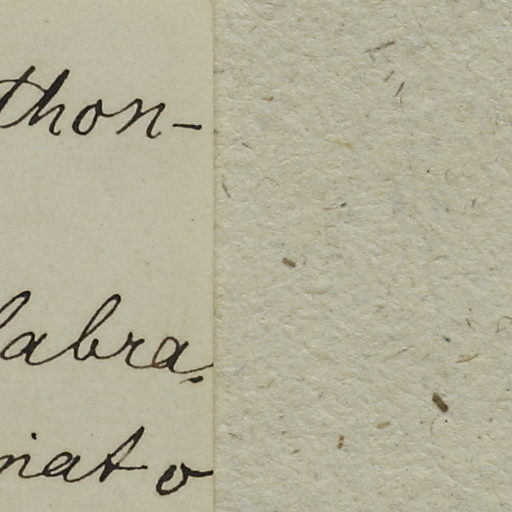 thon-
labra,
nat o